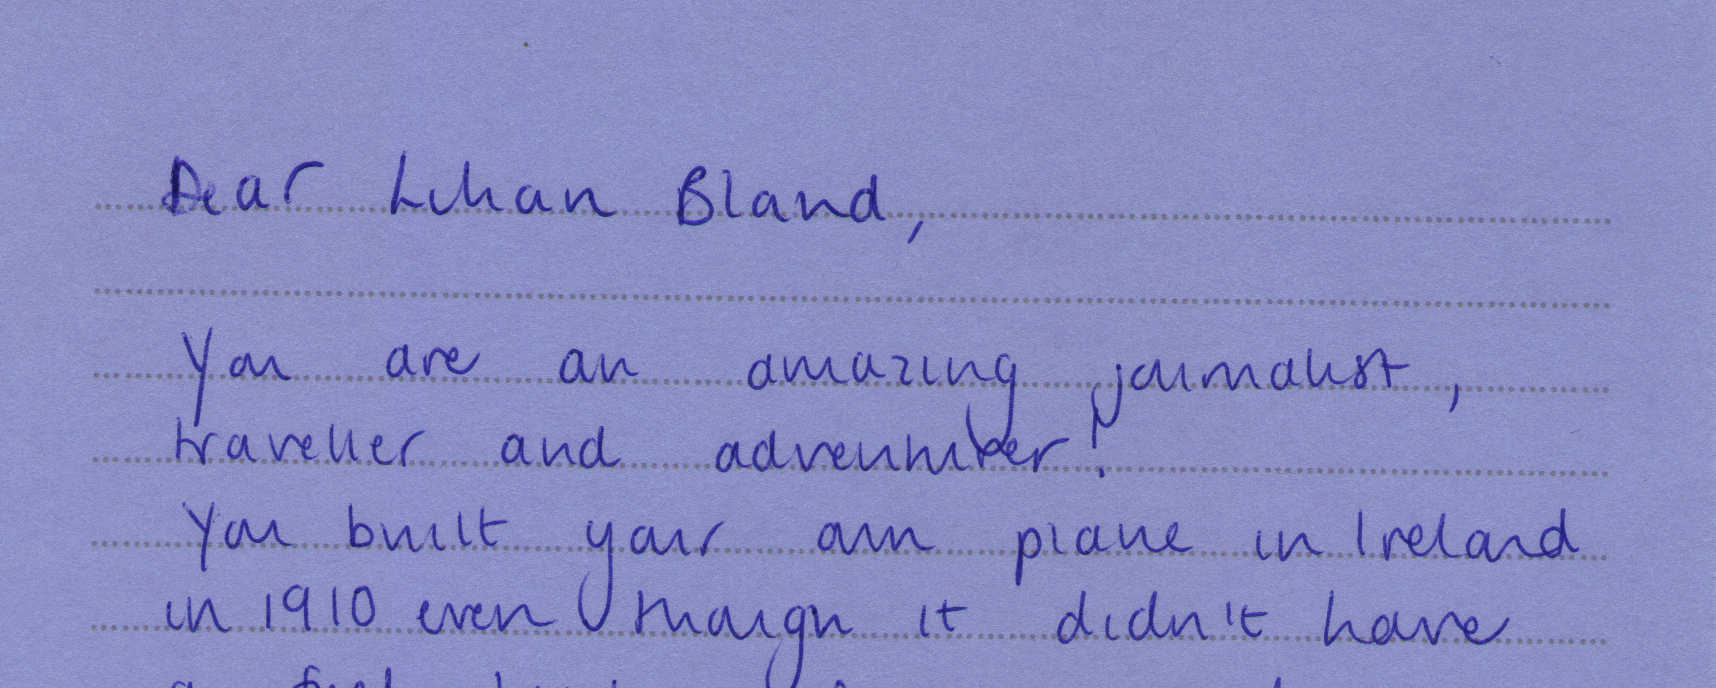 Dear Lilian Bland,
You are an amazing journalist,
traveller and adventurer!
You built your own plane in Ireland
in 1910 even though it didn't have
a fuel